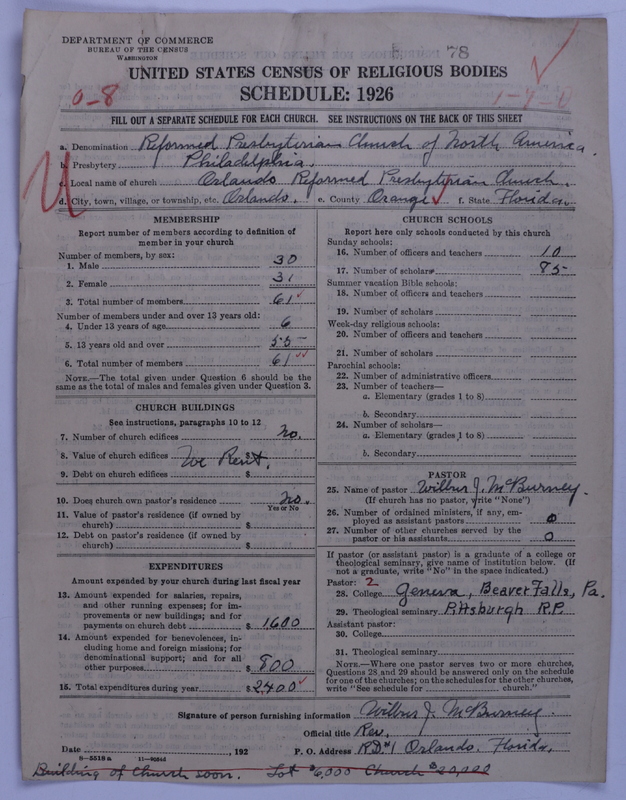 DEPARTMENT OF COMMERCE
BUREAU OF THE CENSUS
WASHINGTON
78
UNITED STATES CENSUS OF RELIGIOUS BODIES
SCHEDULE: 1926
0-8
FILL OUT A SEPARATE SCHEDULE FOR EACH CHURCH. SEE INSTRUCTIONS ON THE BACK OF THIS SHEET
a. Denomination Reformed Presbyterian Church of North America.
b. Presbytery Philadelphia.
c. Local name of church Orlando Reformed Presbyterian Church.
d. City, town, village, or township, etc. Orlando. e. County Orange f. State Florida.
MEMBERSHIP
Report number of members according to definition of
member in your church
Number of members, by sex:
1. Male 30
2. Female 31
3. Total number of members 61
Number of members under and over 13 years old:
4. Under 13 years of age 6
5. 13 years old and over 55
6. Total number of members 61
NOTE.—The total given under Question 6 should be the
same as the total of males and females given under Question 3.
CHURCH BUILDINGS
See instructions, paragraphs 10 to 12
7. Number of church edifices no.
8. Value of church edifices $ We Rent.
9. Debt on church edifices $
10. Does church own pastor's residence no.
Yes or No
11. Value of pastor's residence (if owned by
church) $
12. Debt on pastor's residence (if owned by
church) $
EXPENDITURES
Amount expended by your church during last fiscal year
13. Amount expended for salaries, repairs,
and other running expenses; for im-
provements or new buildings; and for
payments on church debt $ 1600
14. Amount expended for benevolences, in-
cluding home and foreign missions; for
denominational support; and for all
other purposes $ 800
15. Total expenditures during year $ 2400
CHURCH SCHOOLS
Report here only schools conducted by this church
Sunday schools:
16. Number of officers and teachers 10
17. Number of scholars 85
Summer vacation Bible schools:
18. Number of officers and teachers
19. Number of scholars
Week-day religious schools:
20. Number of officers and teachers
21. Number of scholars
Parochial schools:
22. Number of administrative officers
23. Number of teachers—
a. Elementary (grades 1 to 8)
b. Secondary
24. Number of scholars—
a. Elementary (grades 1 to 8)
b. Secondary
PASTOR
25. Name of pastor Wilbur J. McBurney.
(If church has no pastor, write "None")
26. Number of ordained ministers, if any, em-
ployed as assistant pastors 0
27. Number of other churches served by the
pastor or his assistants 0
If pastor (or assistant pastor) is a graduate of a college or
theological seminary, give name of institution below. (If
not a graduate, write "No" in the space indicated.)
Pastor: 2
28. College Geneva, Beaver Falls, Pa.
29. Theological seminary Pittsburgh R.P.
Assistant pastor:
30. College
31. Theological seminary
NOTE.—Where one pastor serves two or more churches,
Questions 28 and 29 should be answered only on the schedule
for one of the churches; on the schedules for the other churches,
write "See schedule for church."
Signature of person furnishing information Wilbur J. McBurney.
Official title Rev.
Date , 192 P. O. Address RD#1 Orlando, Florida.
8-5518a 11-9056d
Building of Church soon. Lot $6,000 Church $20,000